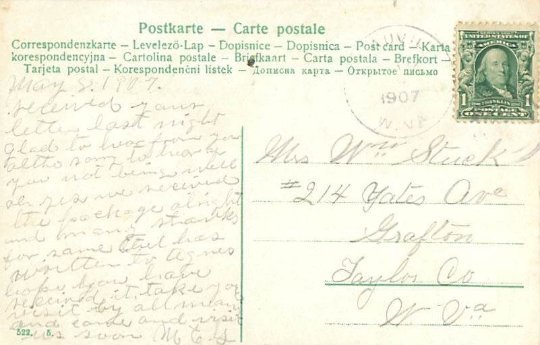 Postkarte — Carte postale
Correspondenzkarte — Levelező-Lap — Dopisnice — Dopisnica — Post card — Karta
korespondencyjna — Cartolina postale — Briefkaart — Carta postala — Brefkort —
Tarjeta postal — Korespondenční lístek — Дописна карта — Открытое письмо
UNITED STATES OF AMERICA
1 FRANKLIN 1
ONE CENT
1907
W. VA
May 2, 1907.
received your
letter last night
glad to hear from you
sory to hear
you not being well
yes we received
the package alright
and many thanks
for same Ethel has
written to Agnes
hope you have
received it. take your
visit by all means
and come and visit
us soon M E S
Mrs Wm Stuck
#214 Yates Ave
Grafton
Taylor Co
W Va
522. 5.